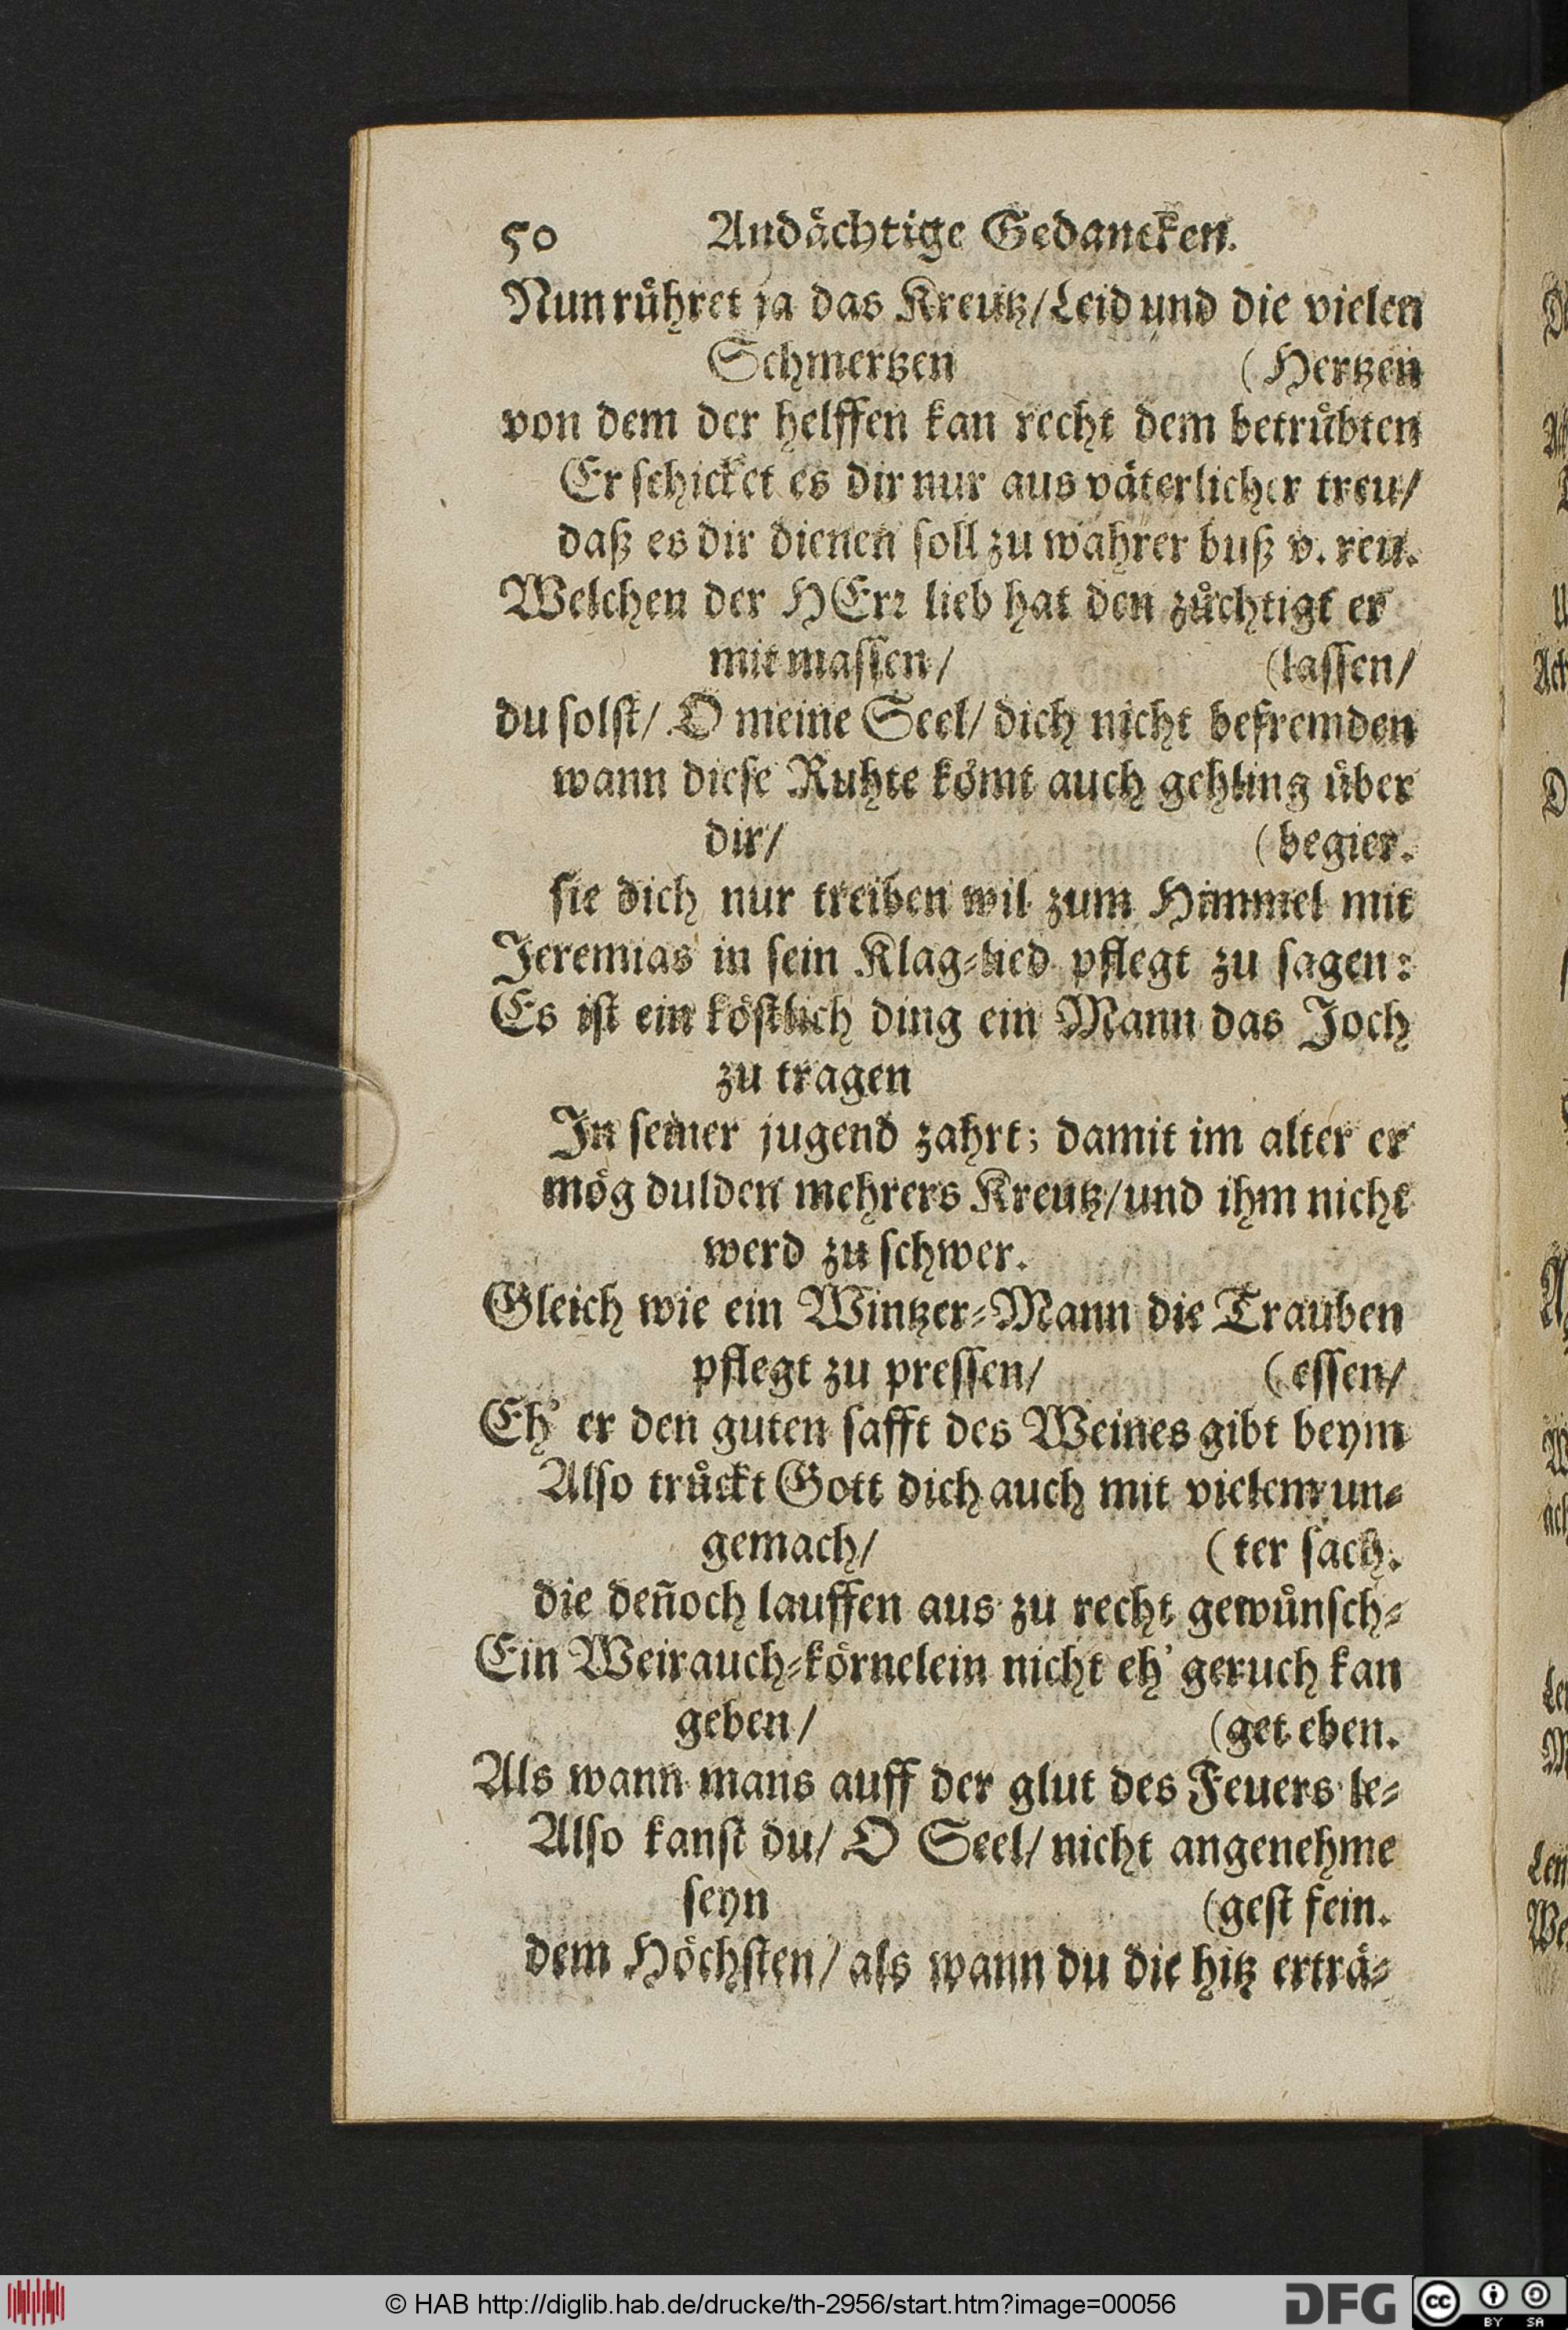 50 Andächtige Gedancken.
Nun rühret ja das Kreutz/Leid und die vielen
Schmertzen (Hertzen
von dem der helffen kan recht dem betrübten
Er schicket es dir nur aus väterlicher treu/
daß es dir dienen soll zu wahrer buß v. reu.
Welchen der HErr lieb hat den züchtigt er
mit massen/ (lassen/
du solst/ O meine Seel/ dich nicht befremden
wann diese Ruhte kömt auch gehling über
dir/ (begier.
sie dich nur treiben wil zum Himmel mit
Jeremias in sein Klag-lied pflegt zu sagen:
Es ist ein köstlich ding ein Mann das Joch
zu tragen
In seiner jugend zahrt; damit im alter er
mög dulden mehrers Kreutz/und ihm nicht
werd zu schwer.
Gleich wie ein Wintzer-Mann die Trauben
pflegt zu pressen/ (essen/
Eh' er den guten safft des Weines gibt beym
Also trückt Gott dich auch mit vielem un-
gemach/ (ter sach.
die deñoch lauffen aus zu recht gewünsch-
Ein Weirauch-körnelein nicht eh' geruch kan
geben/ (get eben.
Als wann mans auff der glut des Feuers le-
Also kanst du/ O Seel/ nicht angenehme
seyn (gest fein.
dem Höchsten/ als wann du die hitz erträ-
© HAB http://diglib.hab.de/drucke/th-2956/start.htm?image=00056
DFG
cc BY SA